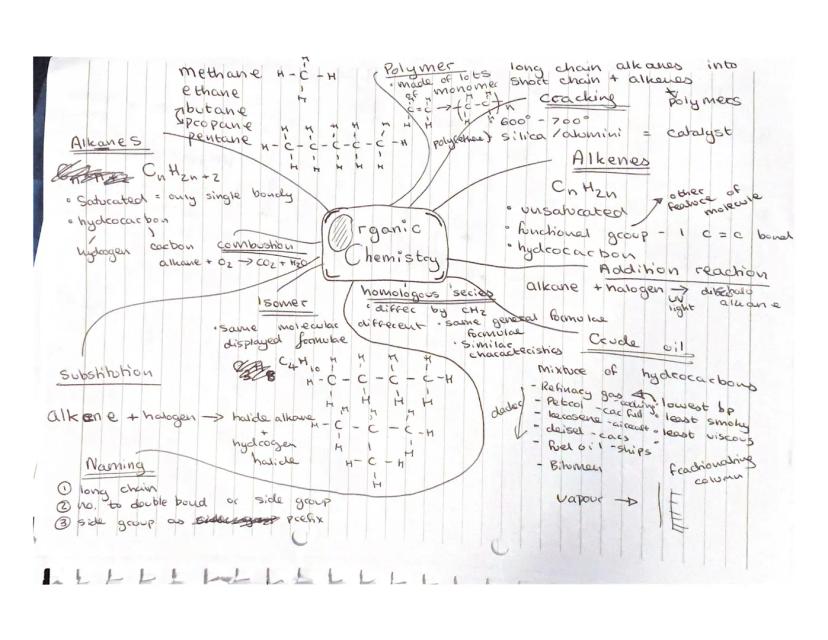 Organic
Chemistry
Alkanes
CnH2n+2
• Saturated = only single bonds
• hydrocarbon
hydrogen carbon
methane
ethane
butane
propane
pentane
Polymer
• made of lots
of monomer
poly(ethene)
long chain alkanes into
short chain + alkenes
polymers
Cracking
600° - 700°
silica / alumini = catalyst
Alkenes
CnH2n
• unsaturated
• functional group - 1 C=C bond
• hydrocarbon
other
feature of
molecule
Addition reaction
alkane + halogen →
uv
light
alkane
Crude oil
mixture of hydrocarbons
- Refinary gas
- Petrol - car fuel
- kerosene - aircraft
- deisel - cars
- fuel oil - ships
- Bitumen
• lowest bp
• least smoky
• least viscous
fractionating
column
vapour →
homologous series
• differ by CH2
• same general formulae
• similar
characteristics
combustion
alkane + O2 → CO2 + H2O
Isomer
• same molecular different
displayed formulae formulae
C4H10
Substitution
alkane + halogen → halide alkane
+
hydrogen
halide
Naming
① long chain
② no. to double bond or side group
③ side group as prefix